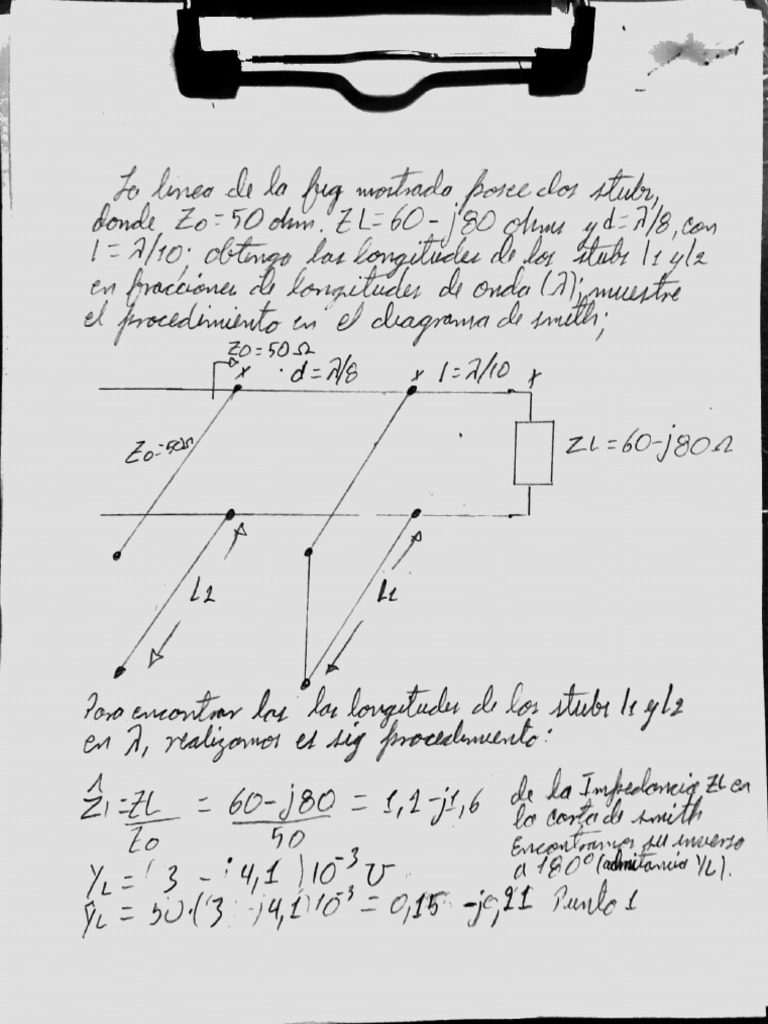 La linea de la fig mostrada posee dos stubs,
donde Zo=50 ohm. ZL=60-j80 ohms y d=λ/8, con
l=λ/10; obtenga las longitudes de los stubs l1 y l2
en fracciones de longitudes de onda (λ); muestre
el procedimiento en el diagrama de smith;
Zo=50Ω
x · d=λ/8 x l=λ/10 x
Zo=50Ω
ZL=60-j80Ω
L2
L1
Para encontrar las las longitudes de los stubs l1 y l2
en λ, realizamos es sig procedimiento:
Ẑl=ZL/Zo = 60-j80/50 = 1,2-j1,6
de la Impedancia ZL en
la carta de smith
Encontramos su inverso
a 180° (admitancia YL).
YL = (3 - j4,1)10⁻³ ℧
ŶL = 50·(3 -j4,1)10⁻³ = 0,15 -j0,21 Punto 1